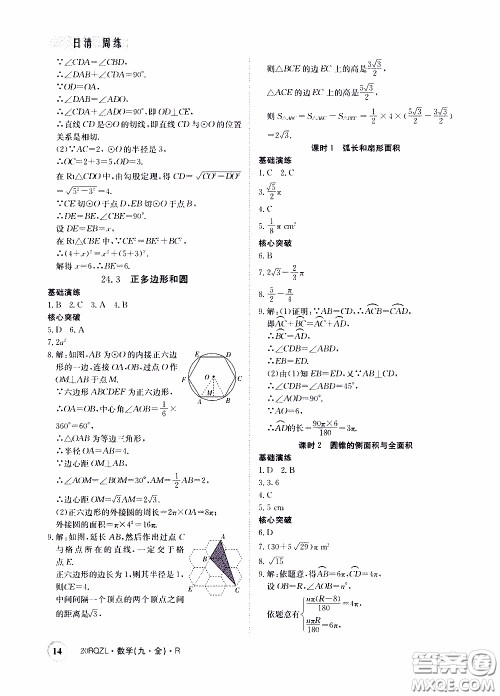 日清 周练
∵∠CDA=∠CBD,
∴∠DAB+∠CDA=90°.
∵OD=OA,
∴∠DAB=∠ADO,
∴∠CDA+∠ADO=90°,即OD⊥CE,
∴直线CD是⊙O的切线,即直线CD与⊙O的位置
关系是相切.
(2)∵AC=2,⊙O的半径是3,
∴OC=2+3=5,OD=3.
在Rt△CDO中,由勾股定理,得CD=√(CO²-DO²)
=√(5²-3²)=4.
∵CE切⊙O于点D,EB切⊙O于点B,
∴DE=BE,∠CBE=90°.
设DE=EB=x,
在Rt△CBE中,∵CE²=BE²+BC²,
∴(4+x)²=x²+(5+3)².
解得x=6,∴BE=6.
24.3 正多边形和圆
基础演练
1.B 2.C 3.A 4.B
核心突破
5.D 6.A
7.2a²
8.解:如图,AB为⊙O的内接正六边
形的一边,连接OA,OB,过点O作
OM⊥AB于点M.
∵六边形ABCDEF为正六边形,
∴OA=OB,中心角∠AOB=1/6×
360°=60°,
∴△OAB为等边三角形.
∴半径OA=AB=4.
∵边心距OM⊥AB,
∴∠AOM=∠BOM=30°,AM=1/2AB=2.
∴边心距OM=√3AM=2√3.
(2)正六边形的外接圆的周长=2π×OA=8π;
外接圆的面积=π×4²=16π.
9.解:如图,延长AB,然后作出过点C
与格点所在的直线,一定交于格
点E.
正六边形的边长为1,则其半径是1,
则CE=4.
中间间隔一个顶点的两个顶点之间的
距离是√3,
则△BCE的边EC上的高是3√3/2,
△ACE的边EC上的高是5√3/2,
则S△ABC=S△AEC-S△BEC=1/2×4×(5√3/2-3√3/2)
=2√3.
课时1 弧长和扇形面积
基础演练
1.C 2.C
3.√5/2π
4.C
5.1/8π cm²
核心突破
6.B
7.2√3-2/3π
8.5/2-π/4
9.解:(1)证明:∵AB=CD,∴AB=CD,
即AC+BC=AC+AD,
∴BC=AD,
∴∠CDB=∠ABD,
∴EB=ED.
(2)由(1)知EB=ED,
∴∠CDB=∠ABD=45°.
∴∠AOD=90°.
∵AO=6,
∴AD的长=90π×6/180=3π.
课时2 圆锥的侧面积与全面积
基础演练
1.D 2.B
3.3.6
4.C
5.5 cm
核心突破
6.D
7.(30+5√29)π m²
8.√15
9.解:依题意,得AB=6π,CD=4π,
设OB=R,∠AOB=n°,
依题意有
nπ(R-8)/180=4π,
nπR/180=6π,
14 20RQZL·数学(九·全)·R